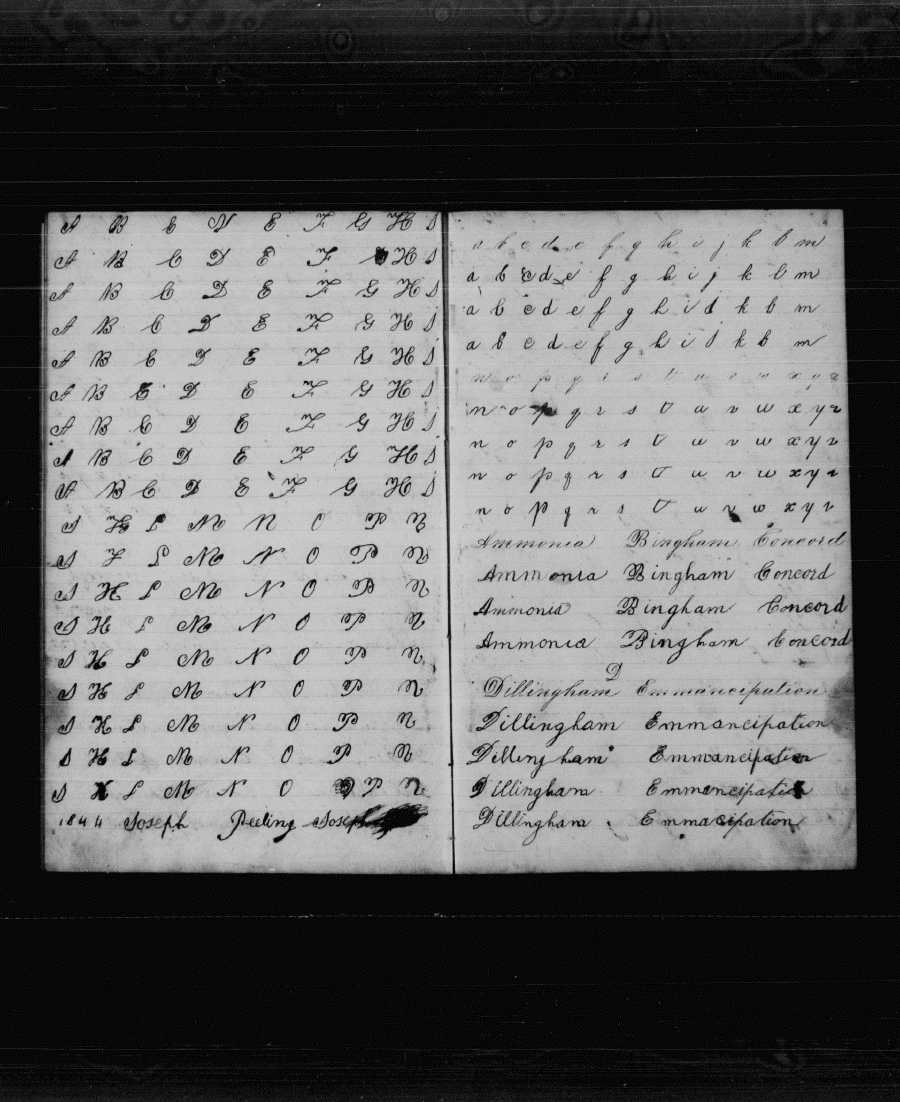 A B C D E F G H I
A B C D E F G H I
A B C D E F G H I
A B C D E F G H I
A B C D E F G H I
A B C D E F G H I
A B C D E F G H I
A B C D E F G H I
A B C D E F G H I
J K L M N O P Q
J K L M N O P Q
J K L M N O P Q
J K L M N O P Q
J K L M N O P Q
J K L M N O P Q
J K L M N O P Q
J K L M N O P Q
J K L M N O P Q
1844 Joseph Peeling Joseph
a b c d e f g h i j k l m
a b c d e f g h i j k l m
a b c d e f g h i j k l m
a b c d e f g h i j k l m
n o p q r s t u v w x y z
n o p q r s t u v w x y z
n o p q r s t u v w x y z
n o p q r s t u v w x y z
n o p q r s t u v w x y z
Ammonia Bingham Concord
Ammonia Bingham Concord
Ammonia Bingham Concord
Ammonia Bingham Concord
D
Dillingham Emmancipation
Dillingham Emmancipation
Dillingham Emmancipation
Dillingham Emmancipation
Dillingham Emmacipation